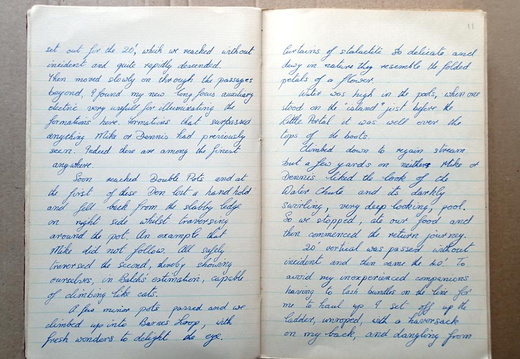 set out for the 20', which we reached without
incident and quite rapidly descended.
Then moved slowly on through the passages
beyond, I found my new long focus auxiliary
electric very useful for illuminating the
formations here. Formations that surpassed
anything Mike or Dennis had previously
seen. Indeed these are among the finest
anywhere.
Soon reached Double Pots and at
the first of these Don lost a hand hold
and fell back from the slabby ledge
on right side whilst traversing
around the pot. An example that
Mike did not follow. All safely
traversed the second, thereby showing
ourselves, in Balch's estimation, capable
of climbing like cats.
A few minor pots passed and we
climbed up into Barnes Loop, with
fresh wonders to delight the eye.
11
Curtains of stalactite so delicate and
downy in nature they resemble the folded
petals of a flower.
Water was high in the pots, when one
stood on the "island" just before the
Little Portal it was well over the
tops of the boots.
Climbed down to regain stream
but a few yards on neither Mike or
Dennis liked the look of the
Water Chute and its darkly
swirling, very deep looking, pool.
So we stopped, ate our food and
then commenced the return journey.
20' vertical was passed without
incident and then came the 40'. To
avoid my inexperienced companions
having to lash bundles on the line for
me to haul up I set off up the
ladder, unroped, with a haversack
on my back, and dangling from